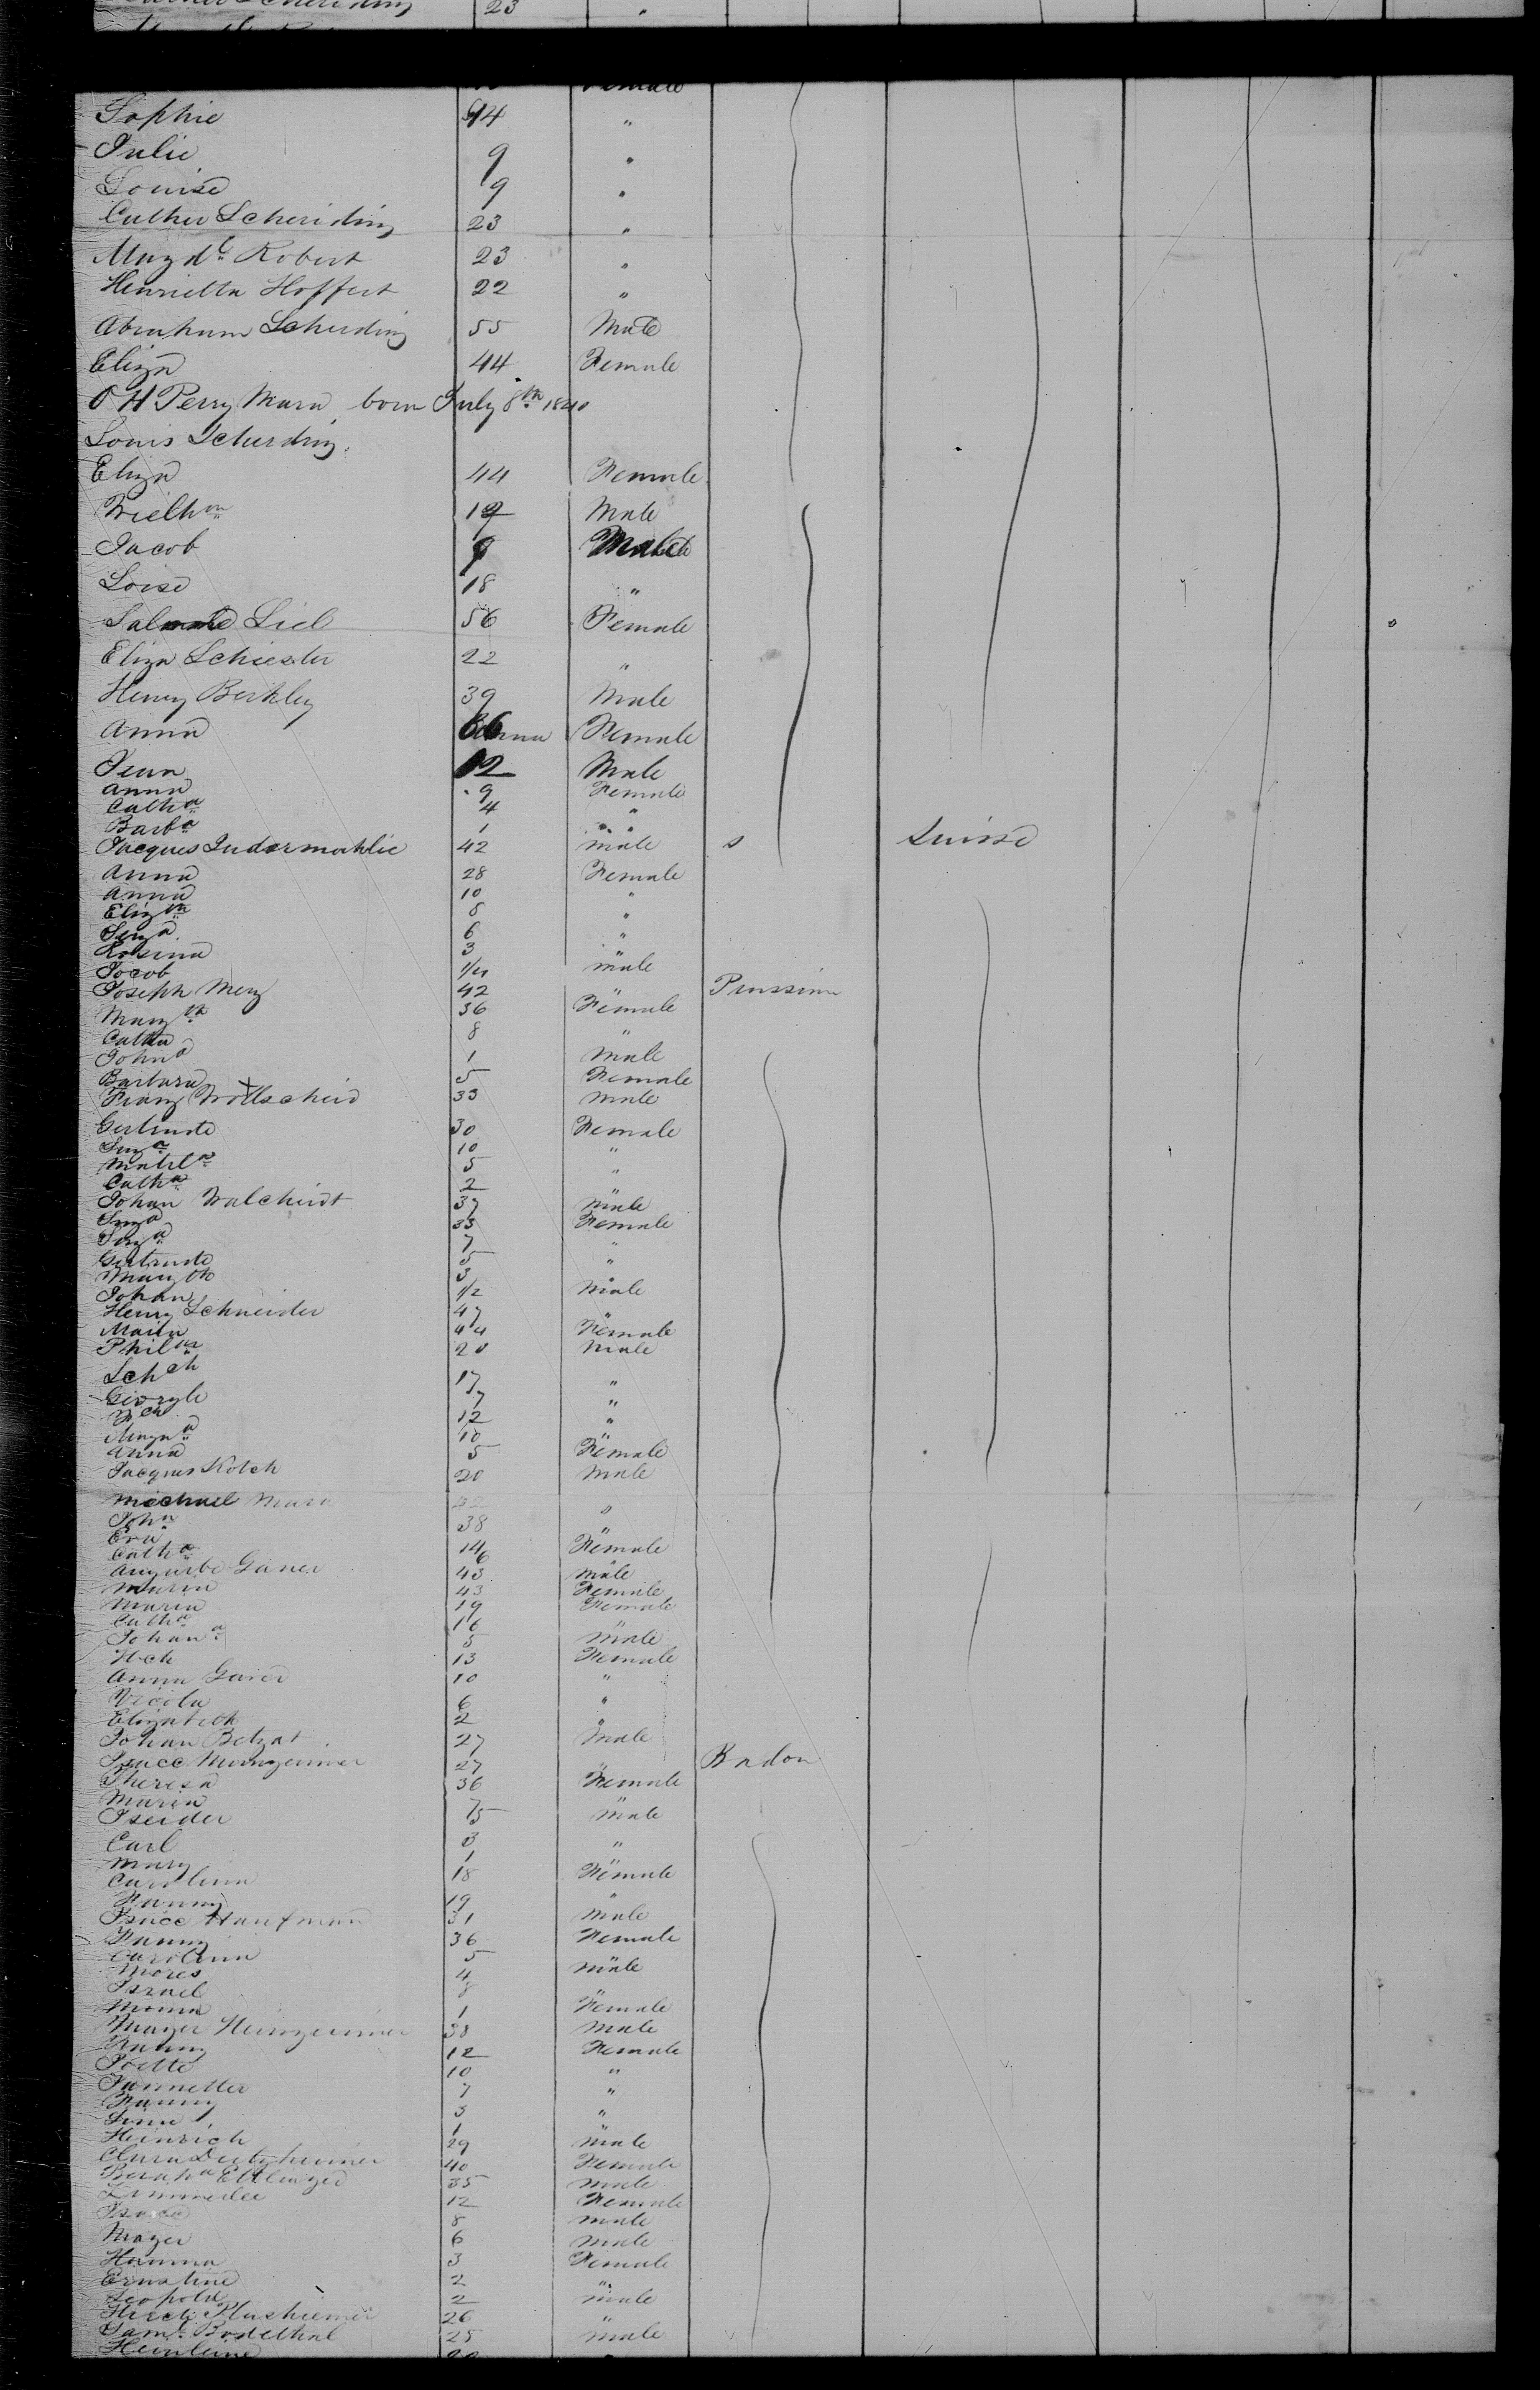 23 "
Female
Sophie 14 "
Julie 9 "
Louise 9 "
Cather Scheriding 23 "
Magdl. Robert 23 "
Henrietta Hoffert 22 "
Abraham Scherding 55 Male
Eliza 44 Female
O H Perry Mara born July 8th 1840
Louis Scherding
Eliza 44 Female
Wielhm 12 Male
Jacob 9 Male
Loise 18 "
Salomé Liel 56 Female
Eliza Schiester 22 "
Henry Berkley 39 Male
Anna 36 Female
Jean 12 Male
Anna 9 Female
Catha 4 "
Barba 1 "
Jacques Indermohlie 42 male s Suisse
Anna 28 Female
Anna 10 "
Elizth 8 "
6 "
Rosina 3 "
Jocob 1/4 male
Joseph Merz 42 " Prussian
Marg 36 Female
Catha 8 "
John 1 Male
Barbara 5 Female
Franz Wollscheid 33 male
Gertrude 30 Female
10 "
Matila 5 "
Catha 2 "
Johan Walcheidt 37 Male
33 Female
7 "
Gertrude 5 "
Margth 3 "
Johan 1/2 Male
Henry Schneider 47 "
Maila 44 Female
Phil 20 Male
Schch 17 "
Georgle 7 "
12 "
10 "
Anna 5 Female
Jacques Kolch 20 Male
Michael Mara "
John 38 "
Eva
Catha 14 Female
6
Ganer 43 male
Maria 43 Female
Maria 19 Female
Catha 16 "
Johan 5 Male
Hch 13 Female
Anna Ganer 10 "
Nicola 6 "
Elizabeth 2 "
Johan Betzat 27 Male
Isacc 27 " Badon
Theresa 36 Female
Maria 7
Iseider 5 Male
Carl 3 "
Mary 1 "
Carolina 18 Female
Fanny 19 "
Isacc Haufman 31 Male
Fanny 36 Female
Carolina 5 "
Mores 4 male
Israel 8 "
1 Female
Mayer Heinzeimer 38 Male
Fanny 12 Female
Joette 10 "
Jannetter 7 "
Fanny 3 "
1 "
Heinrich 29 Male
Clara 40 Female
Ettlinger 35 male
12 Female
8 male
Mayer 6 male
Hanna 3 Female
Ernstine 2 "
Leopold 2 male
26 "
Saml. Bodethal 25 male